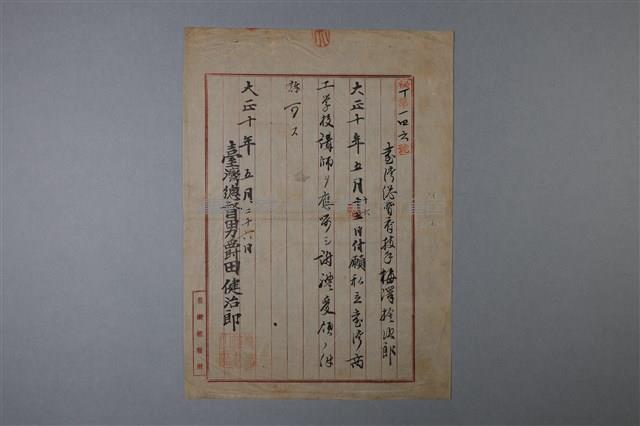 秘丁第一四六號
臺灣總督府技手 梅澤捨次郎
大正十年五月十六日付願私立臺灣商
工学校講師ノ應嘱シ謝禮受領ノ件
許可ス
大正十年五月二十六日
臺灣總督男爵田健治郎
臺灣總督府